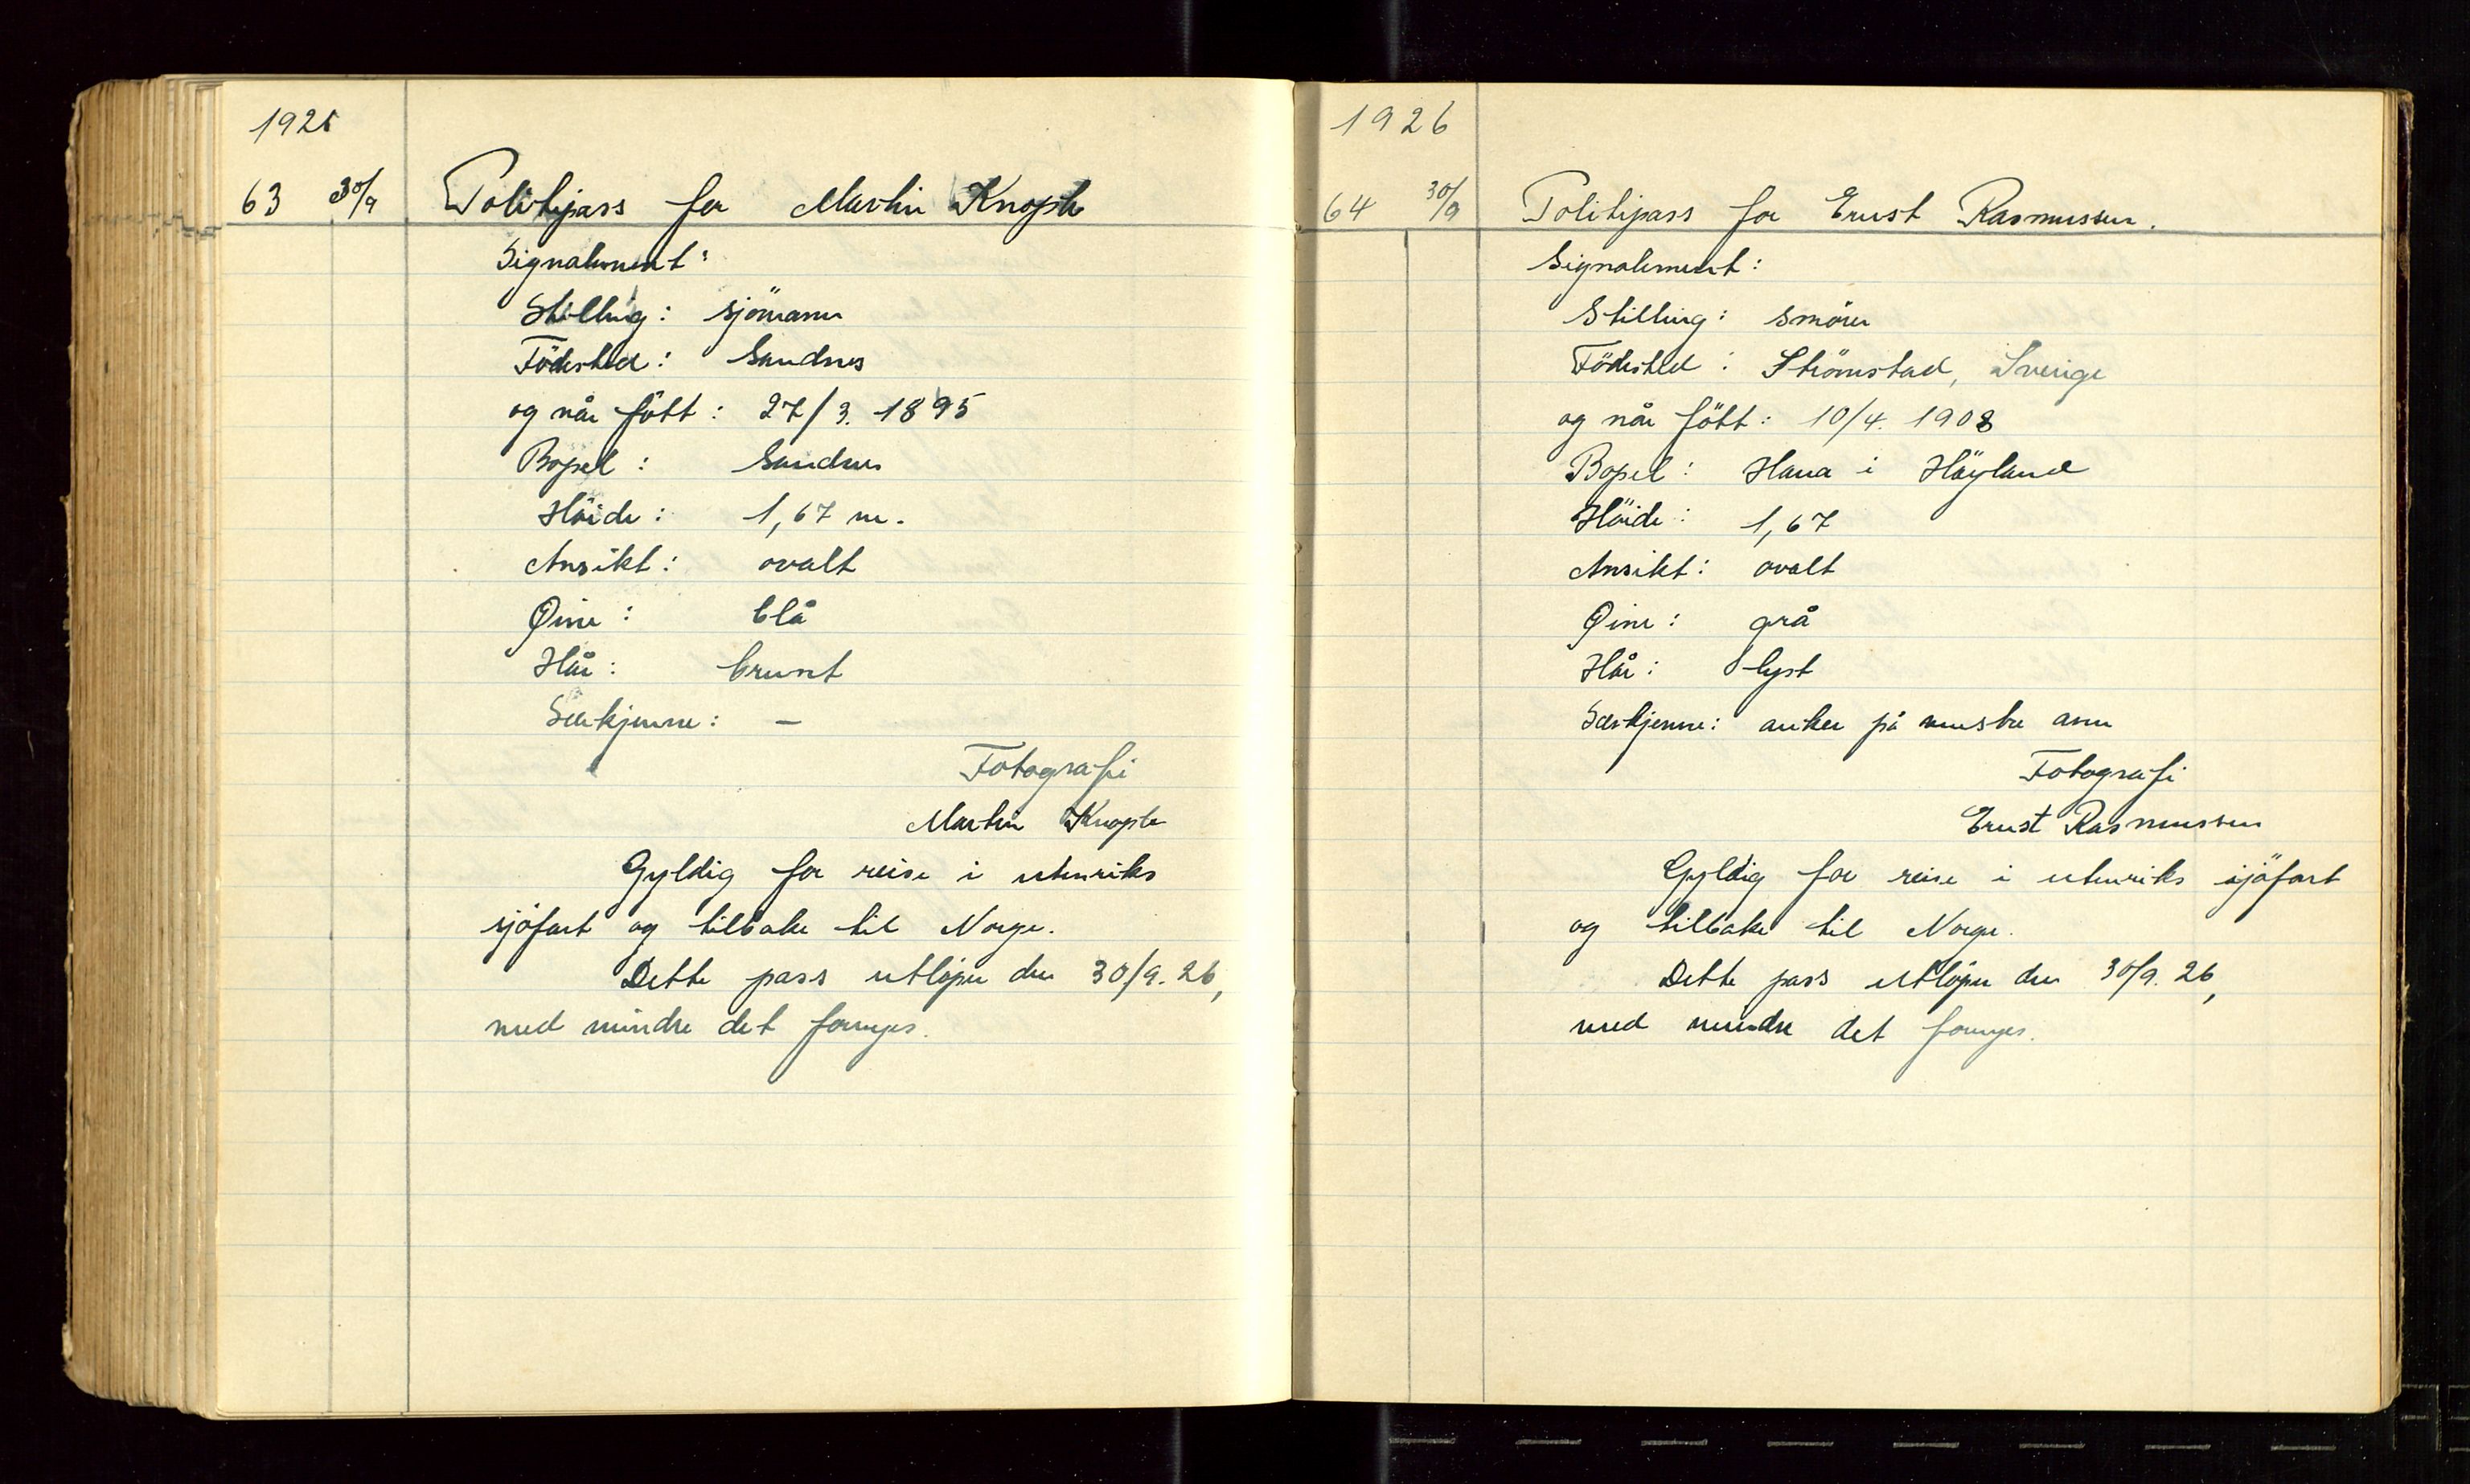 1925
63 30/9 Politipass for Martin Knoph
Signalement:
Stilling: sjömann
Födested: Sandnes
og når född: 27/3. 1895
Bopel: Sandnes
Höide: 1,67 m.
Ansikt: ovalt
Øine: blå
Hår: brunt
Særkjenne: —
Fotografi
Martin Knoph
Gyldig for reise i utenriks
sjöfart og tilbake til Norge.
Dette pass utløper den 30/9. 26,
med mindre det fornyes.
1926
64 30/9 Politipass for Ernst Rasmussen.
Signalement:
Stilling: smörer
Födested: Strömstad, Sverige
og når fött: 10/4. 1908
Bopel: Hana i Höyland
Höide: 1,67
Ansikt: ovalt
Øine: grå
Hår: lyst
Særkjenne: anker på venstre arm
Fotografi
Ernst Rasmussen
Gyldig for reise i utenriks sjöfart
og tilbake til Norge.
Dette pass utlöper den 30/9. 26,
med mindre det fornyes.